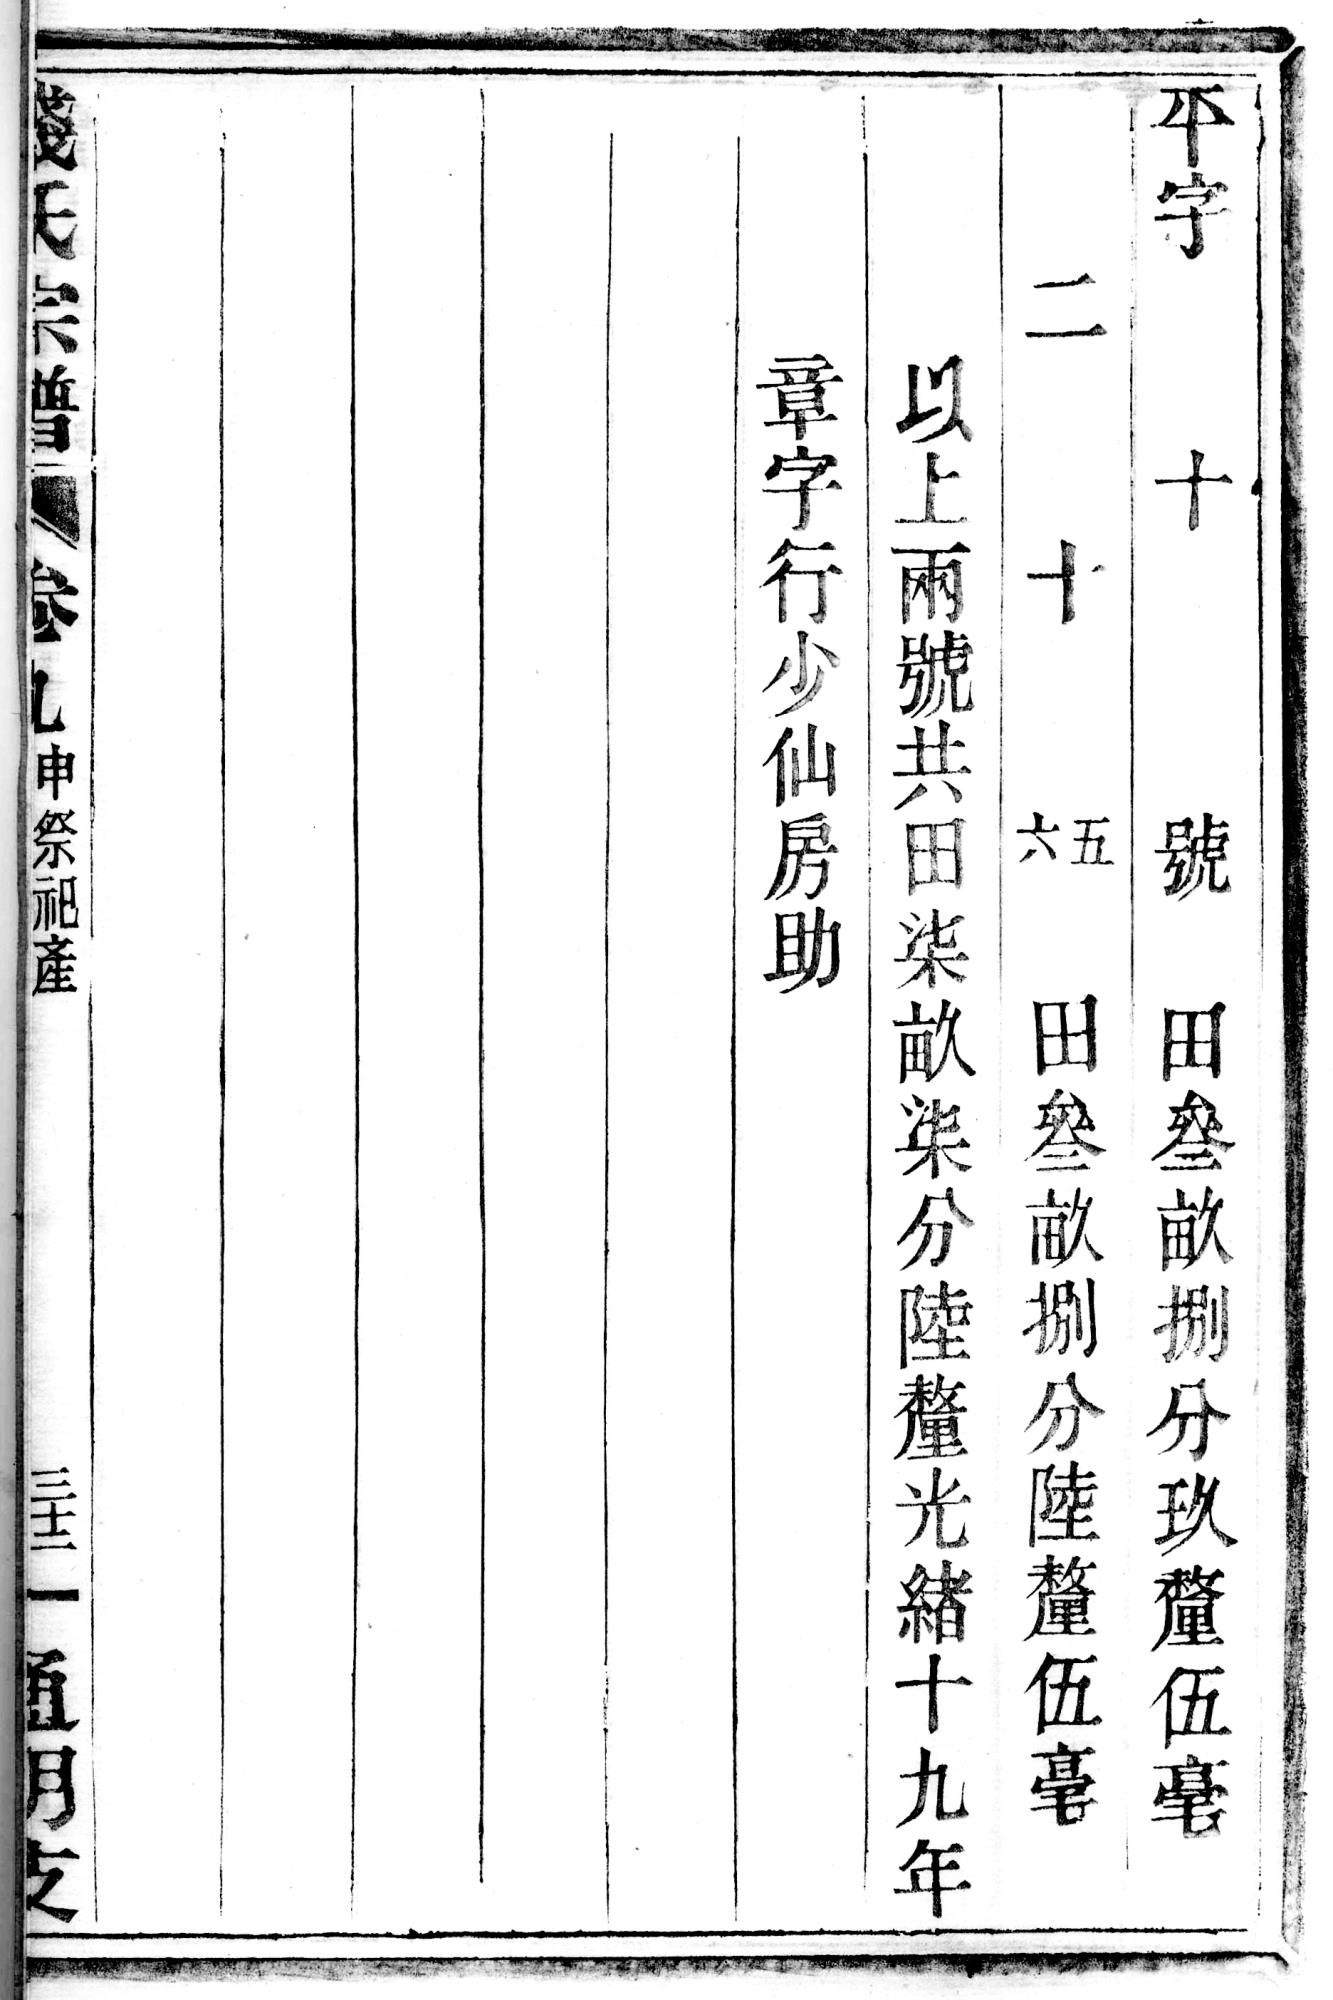 平字十號田叄畝捌分玖釐伍毫
二十五六田叄畝捌分陸釐伍毫
以上兩號共田柒畝柒分陸釐光緒十九年
章字行少仙房助
錢氏宗譜卷九申祭祀產三十二一通明支